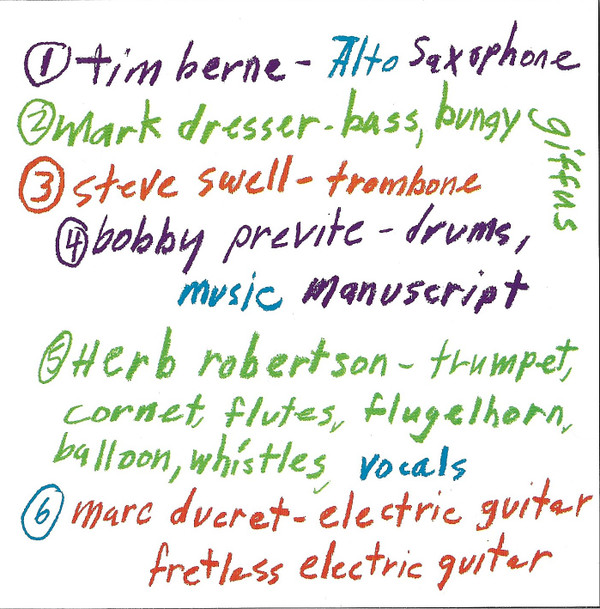 ① tim berne - Alto Saxophone
② mark dresser - bass, bungy
giffus
③ steve swell - trombone
④ bobby previte - drums,
music manuscript
⑤ Herb robertson - trumpet,
cornet, flutes, flugelhorn,
balloon, whistles, vocals
⑥ marc ducret - electric guitar
fretless electric guitar